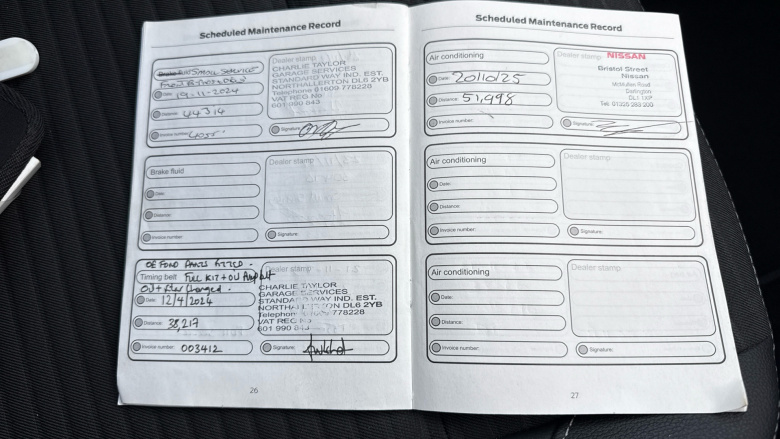 Scheduled Maintenance Record
Brake fluid
Date: 19-11-2024
Distance: 44314
Invoice number:
Dealer stamp
CHARLIE TAYLOR
GARAGE SERVICES
STANDARD WAY IND. EST.
NORTHALLERTON DL6 2YB
Telephone 01609 778228
VAT REG No
601 990 843
Signature:
Brake fluid
Date:
Distance:
Invoice number:
Dealer stamp
Signature:
OE FORD PARTS FITTED.
Timing belt FULL KIT + OIL
Oil + filter Changed.
Date: 12/4/2024
Distance: 38,217
Invoice number: 003412
Dealer stamp
CHARLIE TAYLOR
GARAGE SERVICES
STANDARD WAY IND. EST.
NORTHALLERTON DL6 2YB
Telephone 01609 778228
VAT REG No
601 990 843
Signature:
26
Scheduled Maintenance Record
Air conditioning
Date: 20/10/25
Distance: 51,498
Invoice number:
Dealer stamp NISSAN
Bristol Street
Nissan
McMullen Road
Darlington
DL1 1XP
Signature:
Air conditioning
Date:
Distance:
Invoice number:
Dealer stamp
Signature:
Air conditioning
Date:
Distance:
Invoice number:
Dealer stamp
Signature:
27